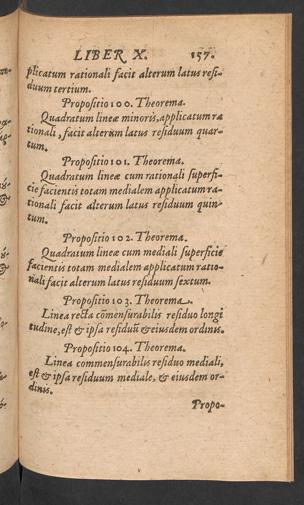 LIBER X. 157.
plicatum rationali facit alterum latus resi-
duum tertium.
Propositio 100. Theorema.
Quadratum lineæ minoris, applicatum ra
tionali, facit alterum latus residuum quar-
tum.
Propositio 101. Theorema.
Quadratum lineæ cum rationali superfi-
cie facientis totam medialem applicatum ra-
tionali facit alterum latus residuum quin-
tum.
Propositio 102. Theorema.
Quadratum lineæ cum mediali superficie
facientis totam medialem applicatum ratio-
nali facit alterum latus residuum sextum.
Propositio 103. Theorema.
Linea recta cōmensurabilis residuo longi
tudine, est & ipsa residuū & eiusdem ordinis.
Propositio 104. Theorema.
Linea commensurabilis residuo mediali,
est & ipsa residuum mediale, & eiusdem or-
dinis.
Propo-